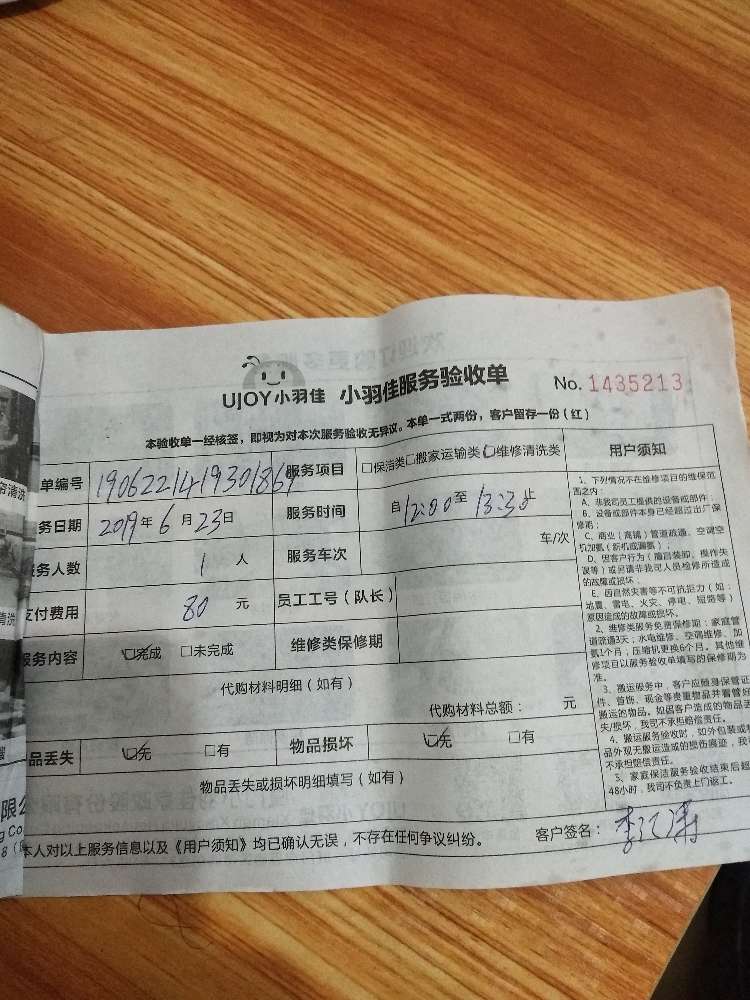 UJOY小羽佳 小羽佳服务验收单 No. 1435213
本验收单一经核签，即视为对本次服务验收无异议。本单一式两份，客户留存一份（红）
单编号 1906221419301869 服务项目 □保洁类□搬家运输类☑维修清洗类 用户须知
务日期 2019年6月23日 服务时间 自12:00至13:30止
服务人数 1人 服务车次 车/次
支付费用 80元 员工工号（队长）
服务内容 ☑完成 □未完成 维修类保修期
代购材料明细（如有）
代购材料总额： 元
品丢失 ☑无 □有 物品损坏 ☑无 □有
物品丢失或损坏明细填写（如有）
1、下列情况不在维修项目的维保范
围之内：
A、非我司员工提供的设备或部件；
B、设备或部件本身已经超过出厂保
修期；
C、商业（商铺）管道疏通、空调空
机加氨（新机或漏氨）；
D、因客户行为（擅自装卸、操作失
误等）或另请非我司人员检修所造成
的故障或损坏；
E、因自然灾害等不可抗拒力（如：
地震、雷电、火灾、停电、短路等）
意原因造成的故障或损坏。
2、维修类服务免费保修期：家庭管
道疏通3天；水电维修、空调维修、加
氨1个月；压缩机更换6个月。其他维
修项目以服务验收单填写的保修期为
准。
3、搬运服务中，客户应随身保管证
件、首饰、现金等贵重物品并看管好
搬运的物品。如因客户造成的物品丢
失/损坏，我司不承担赔偿责任。
4、搬运服务验收时，如外包装或
品外观无搬运造成的损伤痕迹，我
不承担赔偿责任。
5、家庭保洁服务验收结束后超
48小时，我司不负责上门返工。
本人对以上服务信息以及《用户须知》均已确认无误，不存在任何争议纠纷。 客户签名：
帘清洗
清洗
限公
g Co